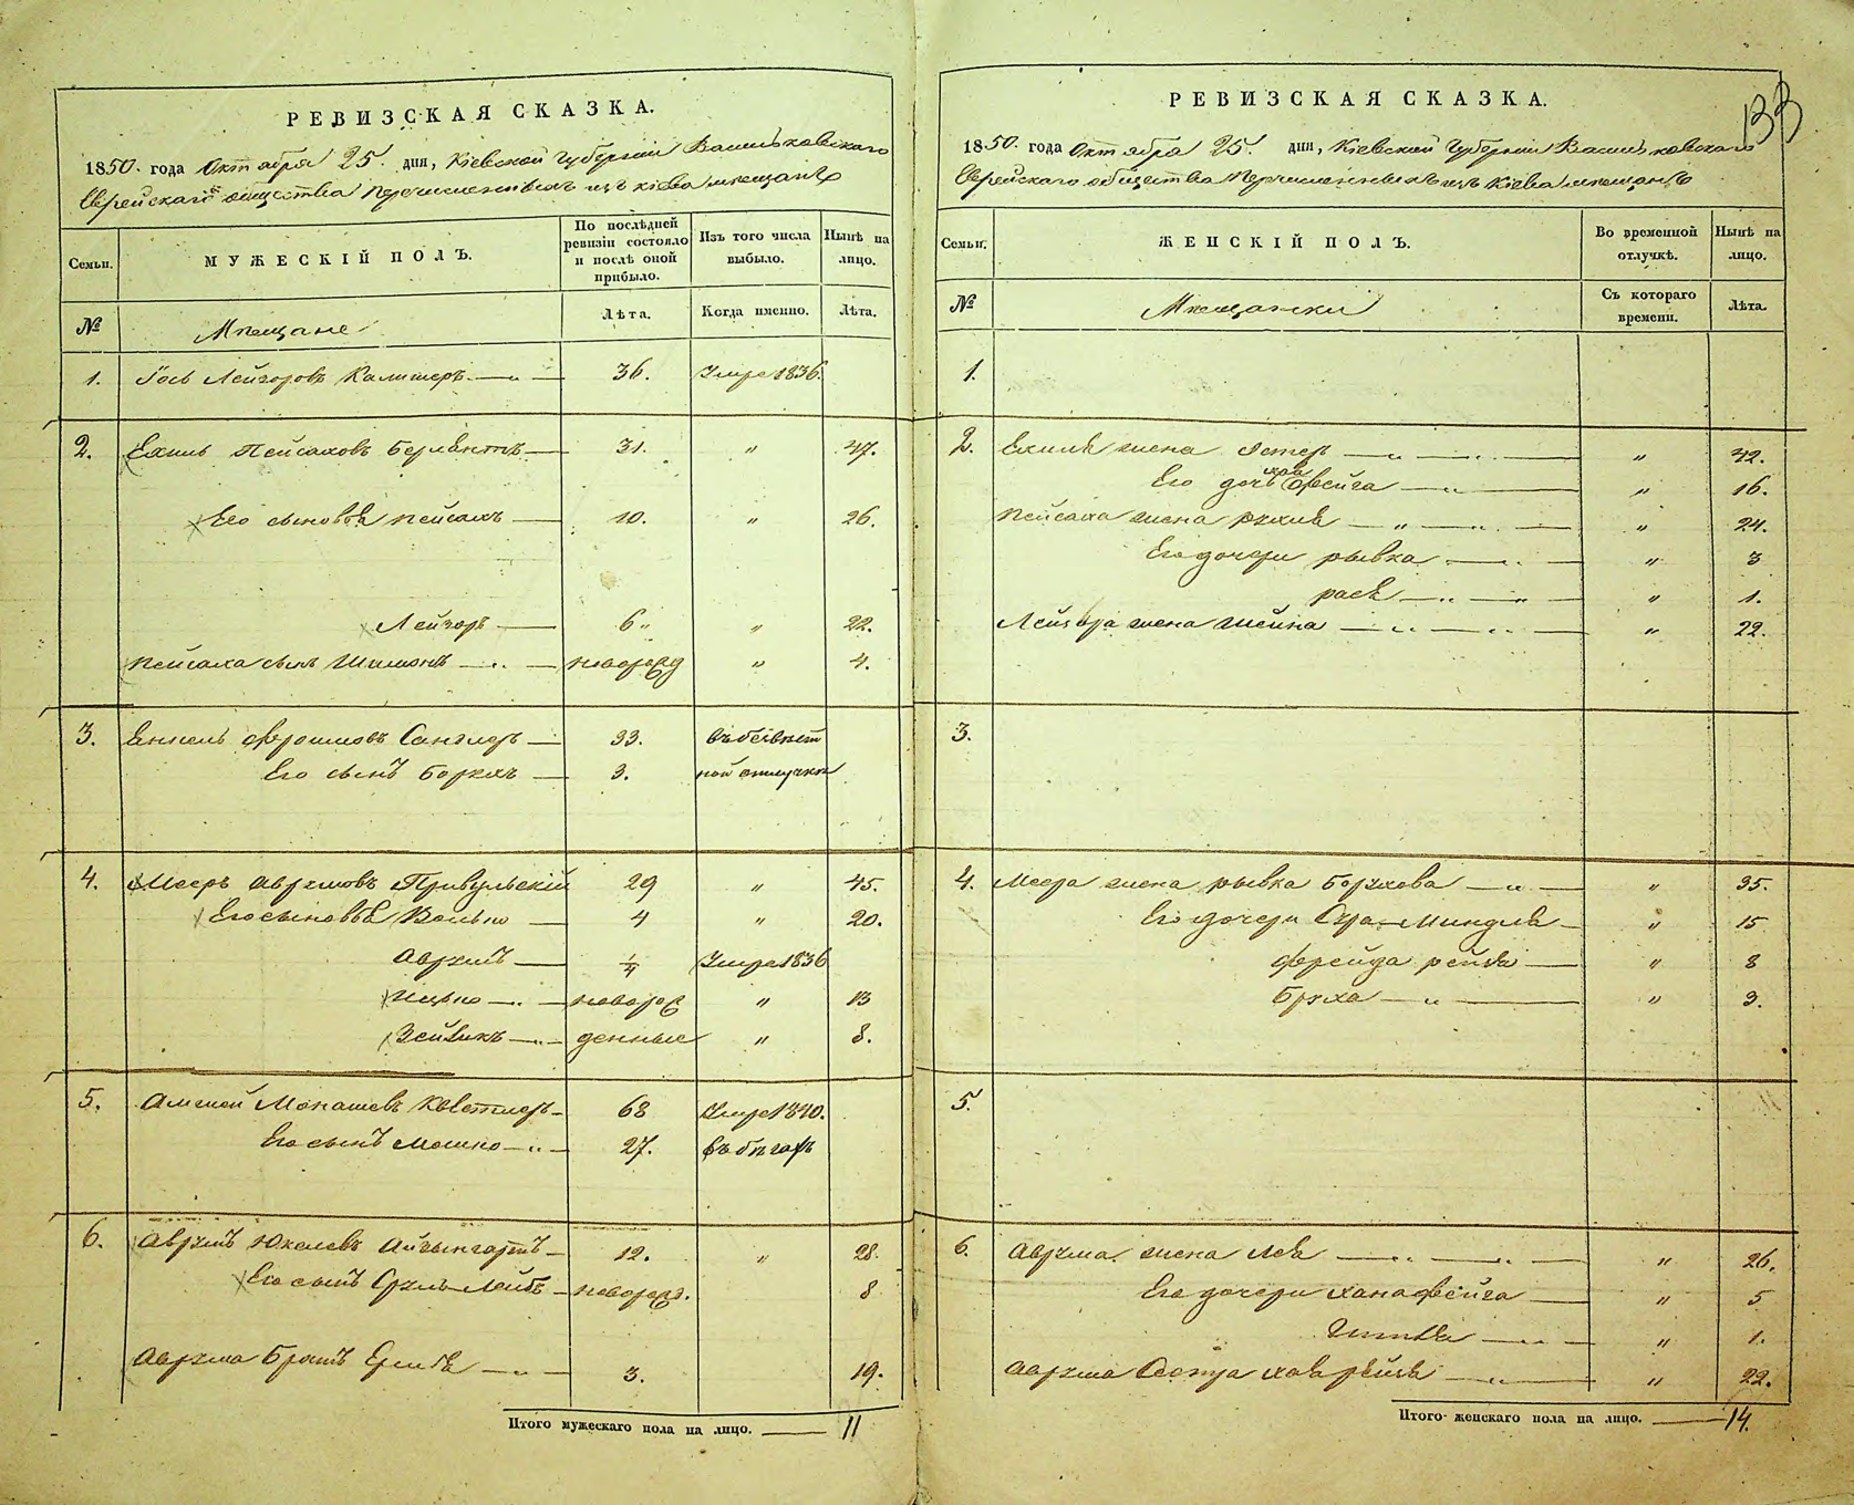 РЕВИЗСКАЯ СКАЗКА.
1850. года Октября 25. дня, Кіевской Губерніи Васильковскаго
Еврейскаго общества перечисленныхъ изъ Кіева мещанъ
Семьи.
МУЖЕСКІЙ ПОЛЪ.
По послѣдней ревизіи состояло и послѣ оной прибыло.
Изъ того числа выбыло.
Нынѣ на лицо.
№
Мещане
Лѣта.
Когда именно.
Лѣта.
1. Іось Лейзоровъ 36. Умре 1836.
2. Ехиль Пейсаховъ 31. " 47.
Его сыновья Пейсахъ 10. " 26.
Лейзоръ 6 " 22.
Пейсаха сынъ Шимонъ новорожд " 4.
3. Янкель Фроимовъ Санглеръ 33. въ безвѣст
Его сынъ Борухъ 3. ной отлучкѣ
4. Мееръ Аврумовъ 29 " 45.
Его сыновья Волько 4 " 20.
Аврумъ 1/4 Умре 1836
Ицько новорож " 13
Зейликъ денные " 8.
5. Монашевъ 68 Умре 1840.
Его сынъ Мошко 27. въ бѣгахъ
6. Аврумъ Юкелевъ 12. " 28.
Его сынъ Сруль Лейбъ новорожд. 8
Аврума братъ 3. 19.
Итого мужескаго пола на лицо. 11
133
РЕВИЗСКАЯ СКАЗКА.
1850. года Октября 25. дня, Кіевской Губерніи Васильковскаго
Еврейскаго общества перечисленныхъ изъ Кіева мещанъ
Семьи.
ЖЕНСКІЙ ПОЛЪ.
Во временной отлучкѣ.
Нынѣ на лицо.
№
Мещанки
Съ котораго времени.
Лѣта.
1.
2. Ехиля жена Эстер " 42.
Хая
Его дочь Фейга " 16.
Пейсаха жена Рухля " 24.
Его дочери Рывка " 3
Рася " 1.
Лейзора жена Шейна " 22.
3.
4. Меера жена Рывка Борухова " 35.
Его дочери Сура-Миндля " 15
Фрейда Рейзя " 8
Бруха " 3.
5.
6. Аврума жена Лея " 26.
Его дочери Хана Фейга " 5
" 1.
Аврума сестра Хая Рейзя " 22.
Итого женскаго пола на лицо. 14.